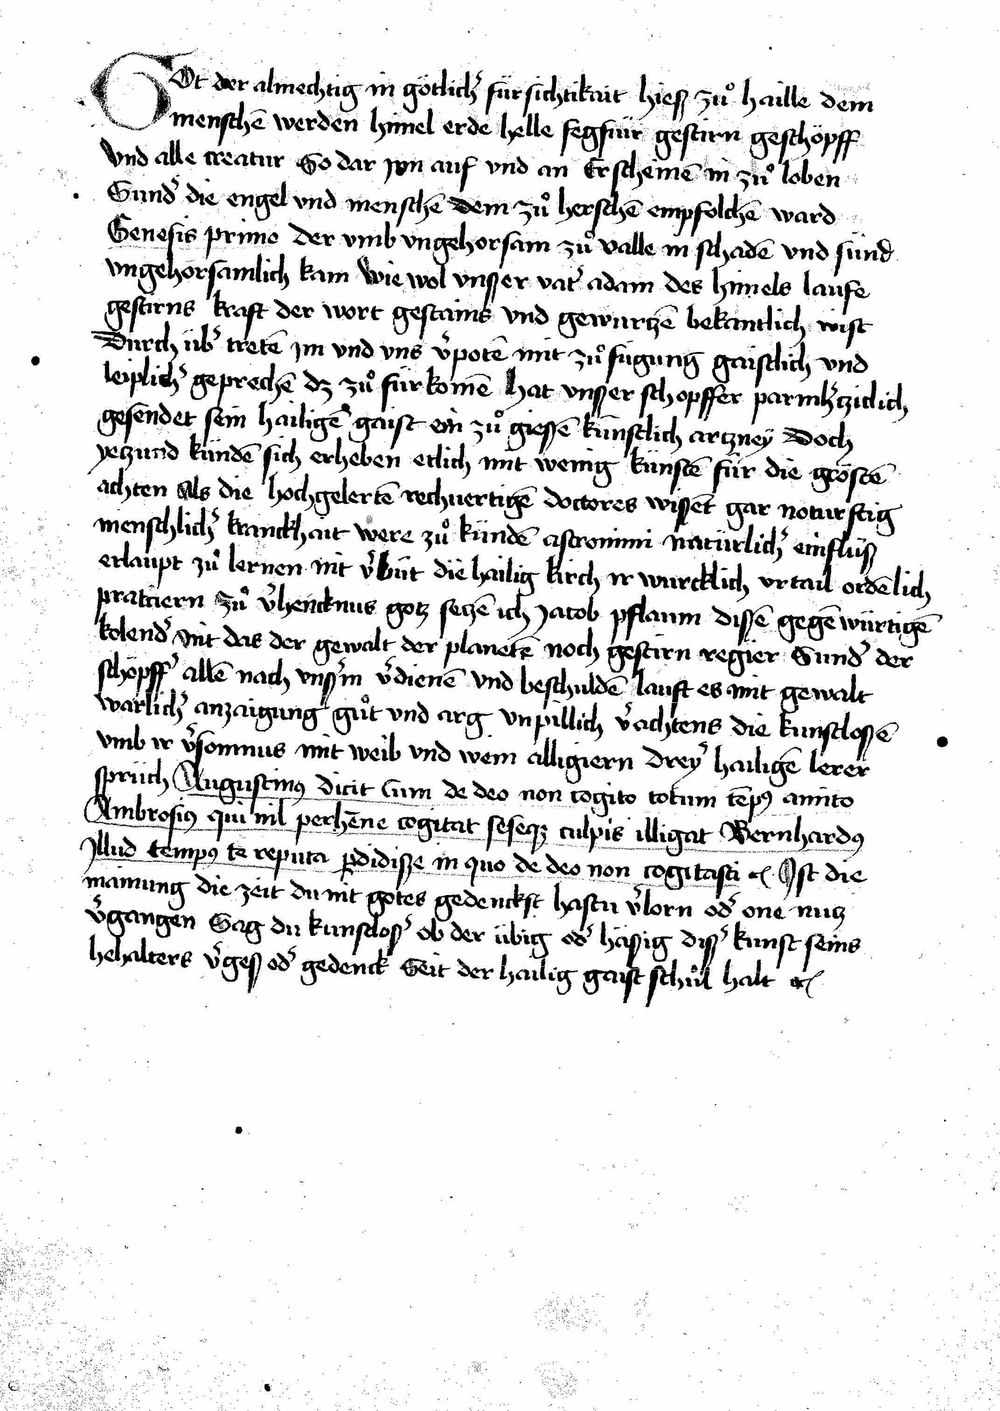 Got der almechtig in götlichʼ fürsichtikait hiess zů haille dem
menschē werden himel erde helle fegfüir gestirn geschöpff
Vnd alle creatur So dar jnn auf vnd an Erscheinē in zů loben
Sundʼ die engel vnd menschē Dem zů herschē empfolchē ward
Genesis primo Der vmb vngehorsam zů valle in schadē vnd sünd
vngehorsamlich kam Wie wol vnsser vatʼ adam des himels laufe
gestirns kraft der wort gestains vnd gewurtzē bekantlich wist
Durch übʼ tretē jm vnd vns v̓potē mit zů fügung gaistlich vnd
leiplichʼ geprechē dz zů fürkomē hat vnsser schopffer parmh̓tziclich
gesendet sein hailigē gaist ein zů giessē künstlich artzney Doch
yetzund kündē sich erheben etlich mit wenig künstē für die gröstē
achten Als die hochgelertē rechuertigē doctores wissēt gar noturftig
menschlichʼ kranckhait were zů kündē astronimi natürlichʼ einflüss
erlaupt zů lernen nit v̓büt die hailig kirch ir wurcklich vrtail ordēlich
praticiern zů v̓hencknus gotz setzē ich Jacob pflaum dissē gegēwürtigē
kolendʼ Nit das der gewalt der planetē noch gestirn regier Sundʼ der
schöpffʼ allē nach vnssʼm v̓dienē vnd beschuldē lauft es mit gewalt
warlichʼ anzaigung gůt vnd arg vnpillich v̓achtens die kunstlossē
vmb ir v̓somnus mit weib vnd wein alligiern dreyʼ hailigē lerer
sprüch Augustinus dicit Cum de deo non cogito totum tēpus amito
Ambrosius qui nil perhēne cogitat seseqz culpis illigat Bernhardus
Jllud tempus te reputa perdidisse in quo de deo non cogitasti ꝛc Ist die
mainung die zeit du nit gotes gedenckst hastu v̓lorn odʼ one nutz
v̓gangen Sag du kunstlosʼ ob der übig odʼ hässig dissʼ kunst seins
behalters v̓gess odʼ gedenck Seit der hailig gaist schůl halt ꝛc